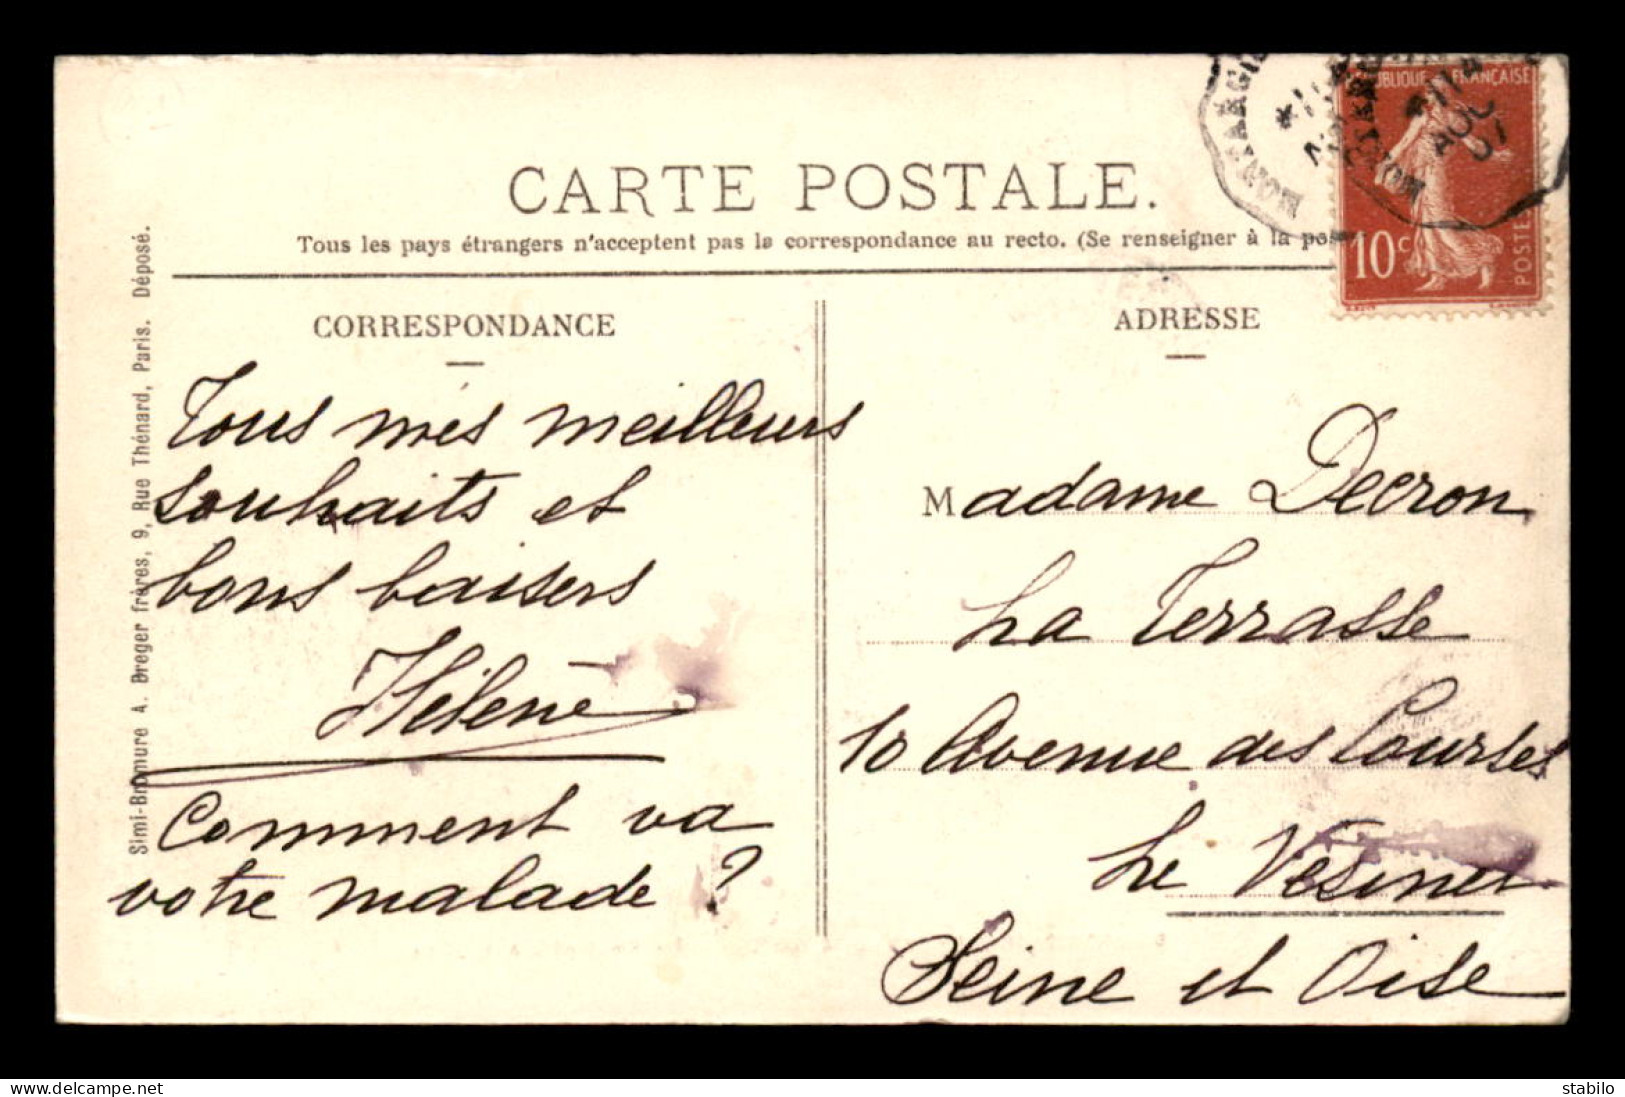 CARTE POSTALE.
Tous les pays étrangers n'acceptent pas la correspondance au recto. (Se renseigner à la pos
CORRESPONDANCE
Tous mes meilleurs
souhaits et
bons baisers
Hélène
Comment va
votre malade ?
ADRESSE
Madame Decron
La Terrasse
10 Avenue des Courses
Le Vésinet
Seine et Oise
Simi-Bromure A. Breger frères, 9, Rue Thénard, Paris. Déposé.
FRANÇAISE
10c
POSTE
AOU
07
delcampe.net
stabilo